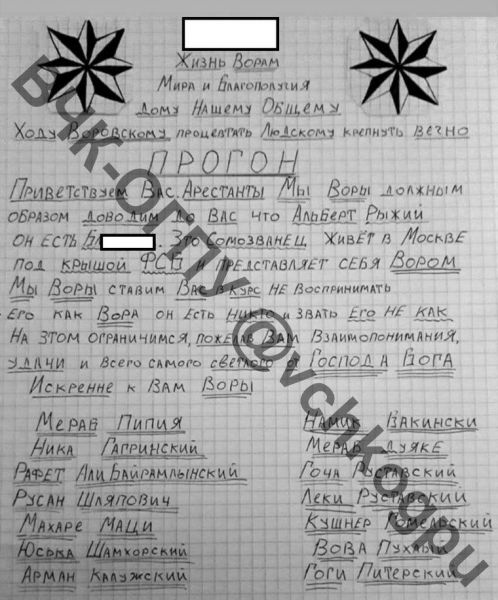 Жизнь Ворам
Мира и Благополучия
Дому Нашему Общему
Ходу Воровскому процветать Людскому крепнуть вечно
ПРОГОН
Приветствуем Вас. Арестанты Мы Воры должным
образом доводим до вас что Альберт Рыжий
он есть Бл . Это Сомозванец живёт в Москве
под крышой ФСБ и представляет себя Вором
Мы Воры ставим Вас в курс не воспринимать
его как Вора он Есть никто и звать его не как
На этом ограничимся, пожелав Вам Взаимопонимания,
удачи и всего самого светлого от Господа Бога
Искренне к Вам Воры
Мераб Пипия
Ника Гагринский
Рафет Али Байрамлынский
Русан Шляпович
Махаре Маци
Юська Шамхорский
Арман Калужский
Намик Бакински
Мераб Дуяке
Гоча Руставский
Леки Руставский
Кушнер Гомельский
Вова Пухлый
Гоги Питерский
ВЧК-ОГПУ @vchkogpu